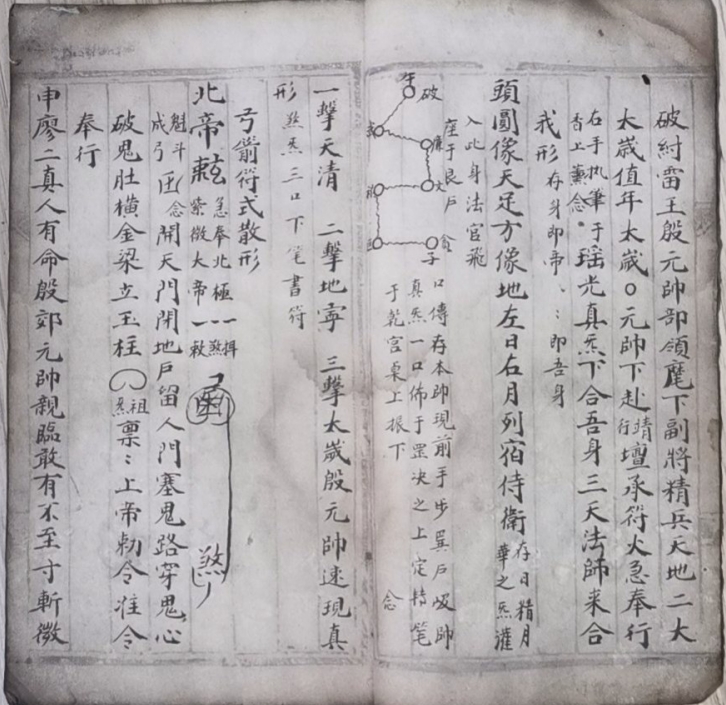 破紂雷王殷元帥部領麾下副將精兵天地二大
太歲值年太歲○元帥下赴靖行壇承符火急奉行
右手执筆于香上薰念瑶光真炁下合吾身三天法師来合
我形存身即帝、:即吾身
頭圓像天足方像地左日右月列宿侍衛存日精月華之炁灌
入此身法官飛
座于艮戶
破
廉
文
子
口傳存本帥現前手步巽戶吸帥
真炁一口佈于罡决之上定持筆念
于乾宮桌上振下
一擊天清 二擊地寧 三擊太歲殷元帥速現真
形 黙炁三口下笔書符
弓箭符式散形
北帝 急奉北極紫微大帝 煞
魁斗成弓 念開天門閉地戶留人門塞鬼路穿鬼心
破鬼肚橫金梁立玉柱 祖炁 禀:上帝勅令准令
奉行
申廖二真人有命殷郊元帥親臨敢有不至寸斬微